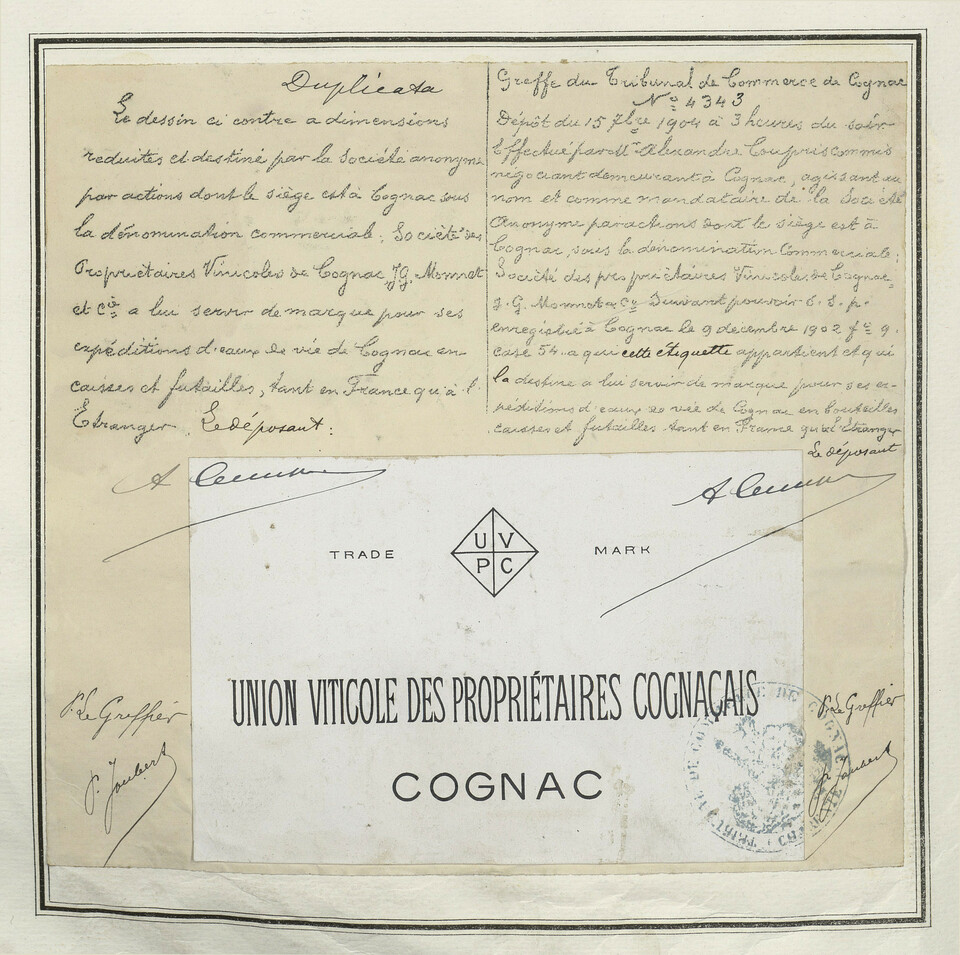 Duplicata
Le dessin ci contre a dimensions
reduites et destiné par la Société anonyme
par actions dont le siège est à Cognac sous
la dénomination commerciale: Société des
Propriétaires Vinicoles de Cognac J.G. Monnet
et Cie a lui servir de marque pour ses
expéditions d'eaux de vie de Cognac en
caisses et futailles, tant en France qu'à l'
Etranger. Le déposant:
Greffe du Tribunal de Commerce de Cognac
No 4343
Dépôt du 15 7bre 1904 à 3 heures du soir
Effectué par Mr Alexandre Coupris commis
négociant demeurant à Cognac, agissant au
nom et comme mandataire de la Société
Anonyme par actions dont le siège est à
Cognac, sous la dénomination Commerciale:
Société des propriétaires Vinicoles de Cognac,
J.G. Monnet & Co Suivant pouvoir S.S.p.
enregistré à Cognac le 9 décembre 1902 fo 9
case 54. a que cette étiquette appartient et qui
la destine a lui servir de marque pour ses ex-
péditions d'eaux de vie de Cognac en bouteilles
caisses et futailles tant en France qu'à l'Etranger
Le déposant
TRADE
U V
P C
MARK
UNION VITICOLE DES PROPRIÉTAIRES COGNAÇAIS
COGNAC
P. Le Greffier
P. Joubert
P. Le Greffier
P. Joubert
TRIBUNAL DE COMMERCE DE COGNAC